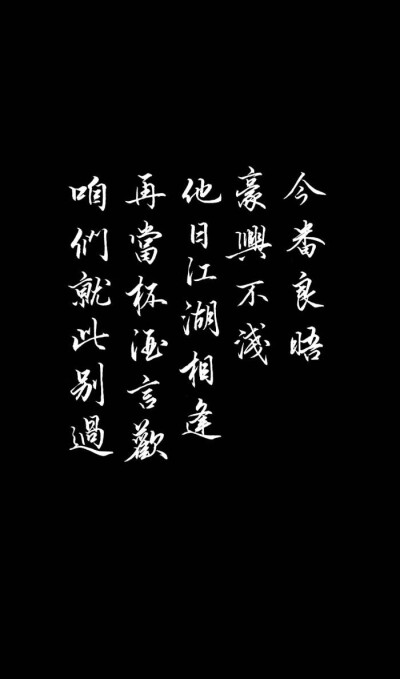 今番良晤
豪興不淺
他日江湖相逢
再當杯酒言歡
咱們就此别過